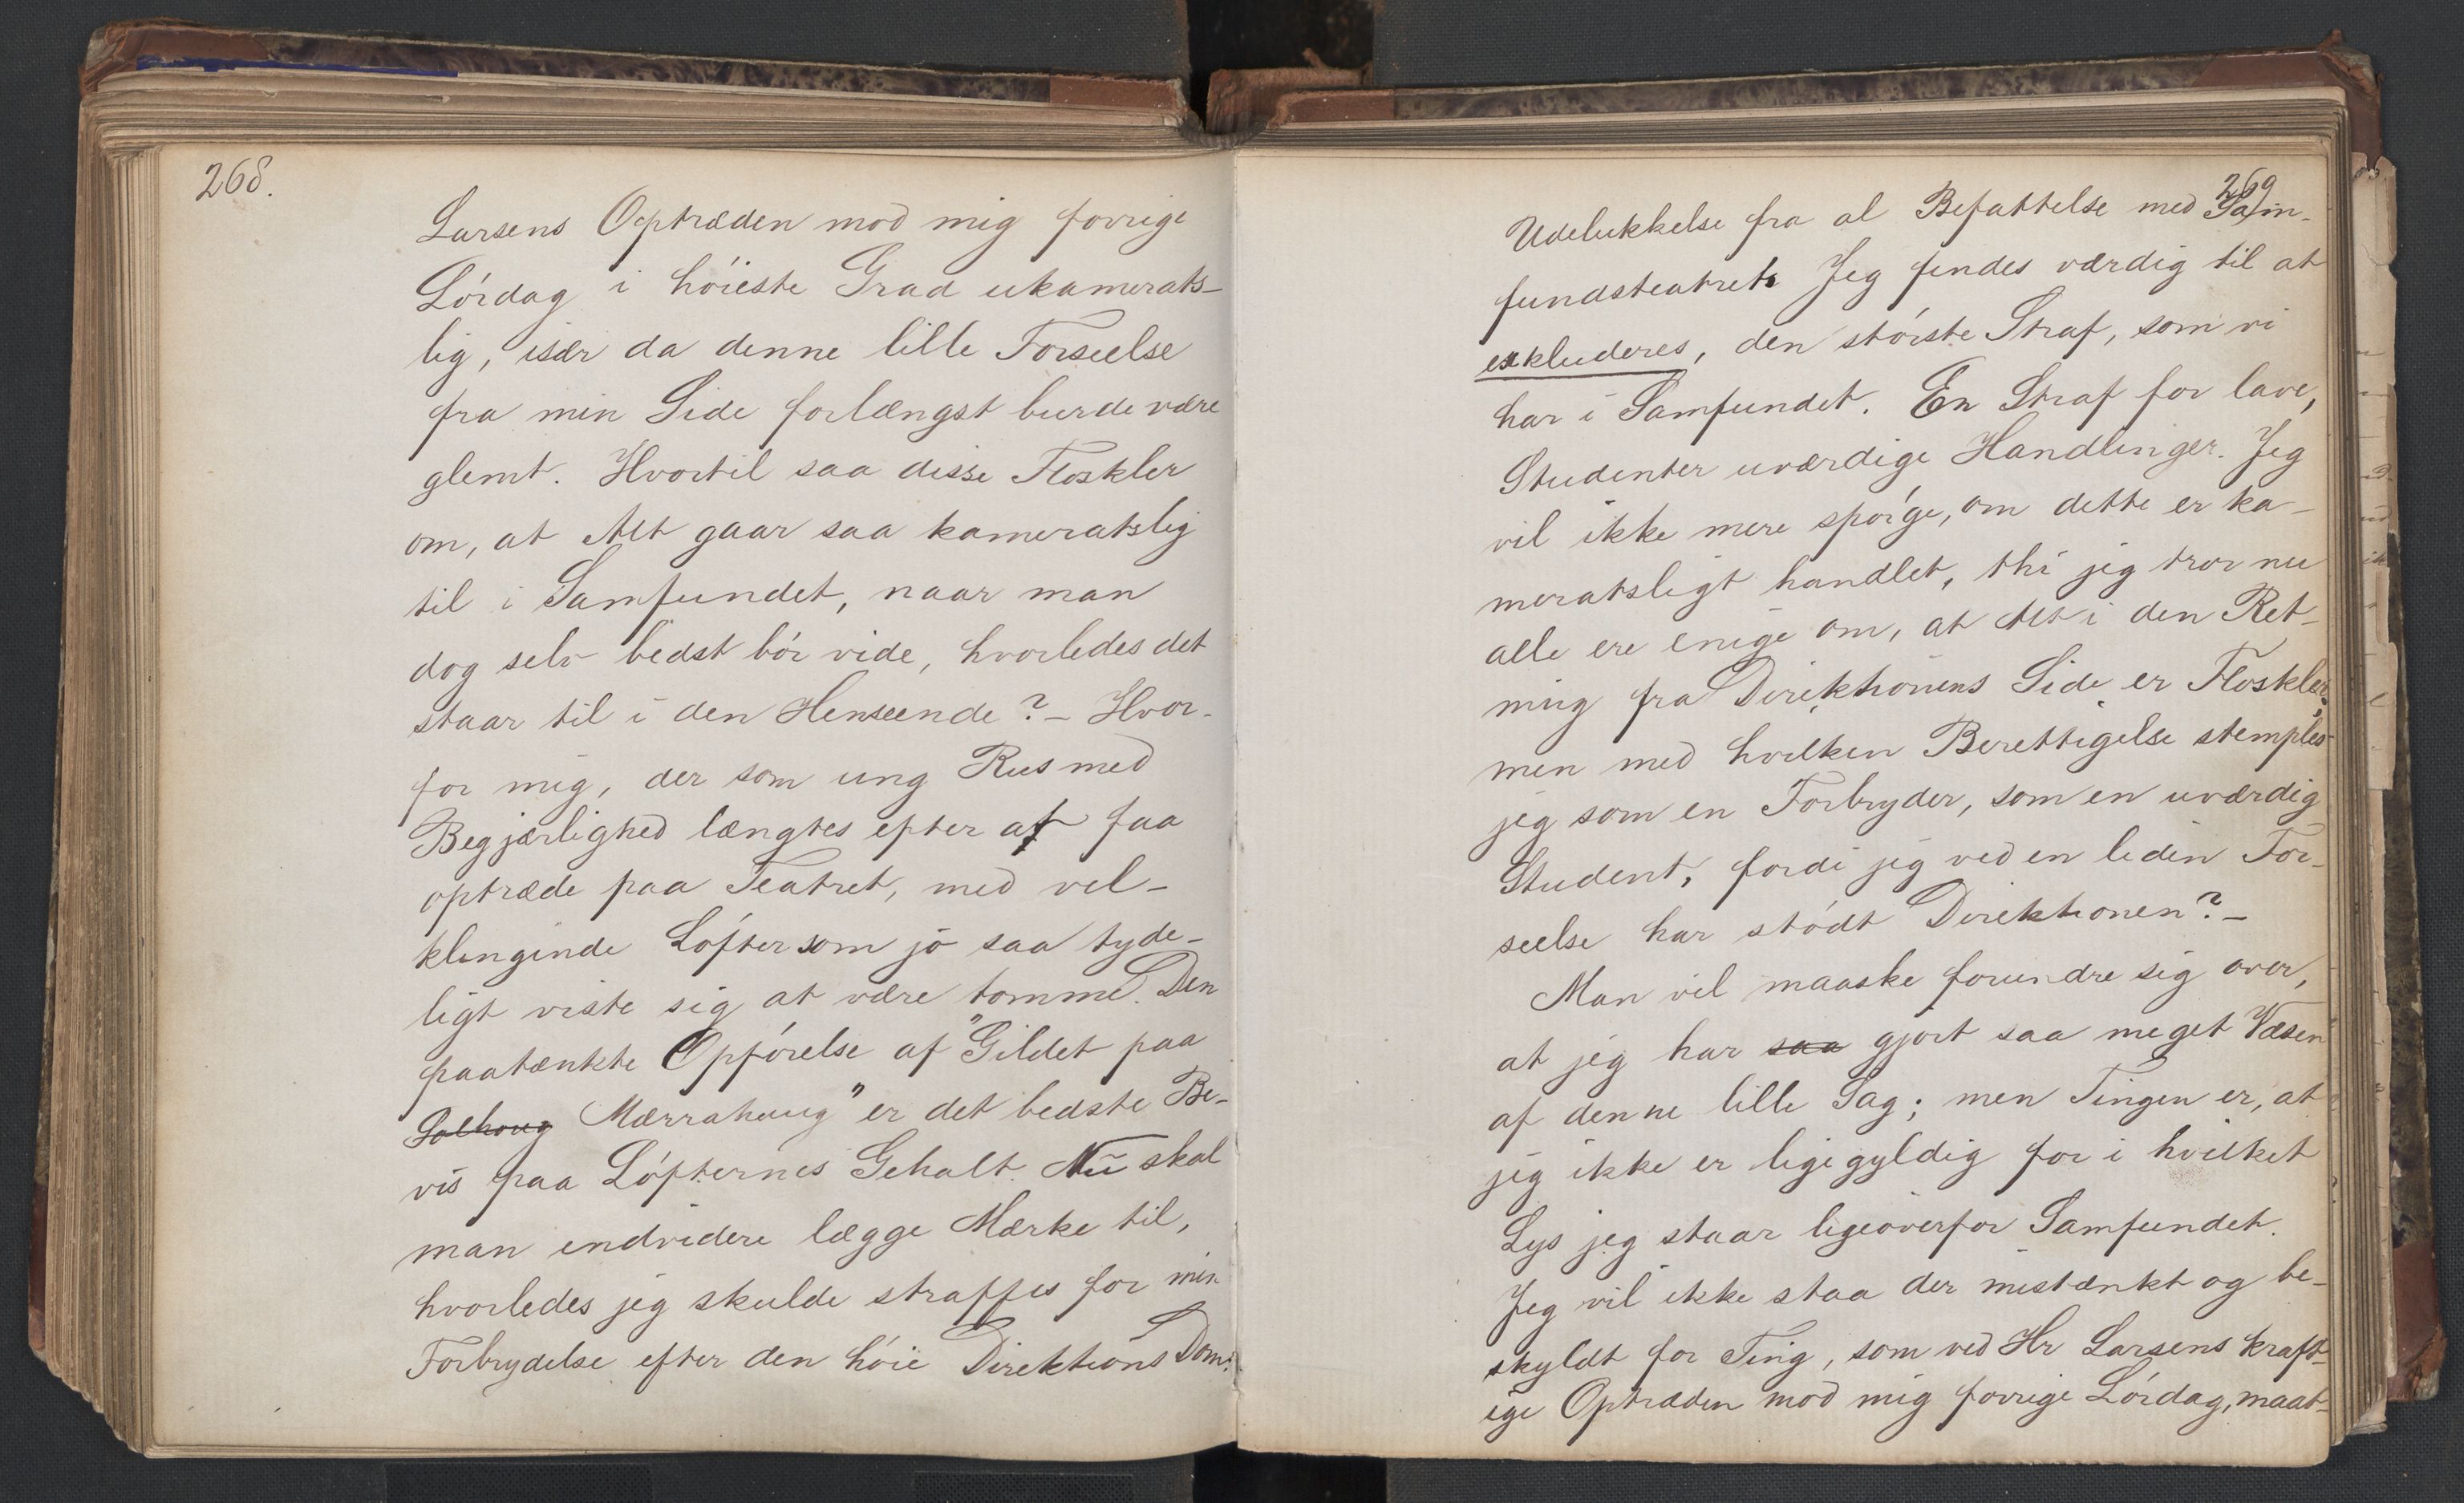 268.
Larsens Optræden mod mig forrige
Lördag i höieste Grad ukamerats-
lig, især da denne lille Forseelse
fra min Side forlængst burde være
glemt. Hvortil saa disse Floskler
om, at Alt gaar saa kameratslig
til i Samfundet, naar man
dog selv bedst bör vide, hvorledes det
staar til i den Henseende? - Hvor-
for mig, der som ung Rus med
Begjærlighed længtes efter at faa
optræde paa Teatret, med vel-
klingende Löfter som jo saa tyde-
ligt viste sig at være tomme. Den
paatænkte Opförelse af "Gildet paa
Solhoug Mærrahaug" er det bedste Be-
vis paa Löfternes Gehalt. Nu skal
man endvidere lægge Mærke til,
hvorledes jeg skulde straffes for min
Forbrydelse efter den höie Direktions Dom:
269
Udelukkelse fra al Befattelse med Sam-
fundsteatret. Jeg findes værdig til at
exkluderes, den störste Straf, som vi
har i Samfundet. En Straf for lave,
Studenter uværdige Handlinger. Jeg
vil ikke mere spörge, om dette er ka-
meratsligt handlet, thi jeg tror nu
alle ere enige om, at Alt i den Ret-
ning fra Direktionens Side er Floskler;
men med hvilken Berettigelse stemples
jeg som en Forbryder, som en uværdig
Student, fordi jeg ved en liden For-
seelse har stödt Direktionen? -
Man vil maaske forundre sig over,
at jeg har saa gjort saa meget Væsen
af denne lille Sag; men Tingen er, at
jeg ikke er ligegyldig for i hvilket
Lys jeg staar ligeoverfor Samfundet.
Jeg vil ikke staa der mistænkt og be-
skyldt for Ting, som ved Hr Larsens kraft-
ige Optræden mod mig forrige Lördag, maat-